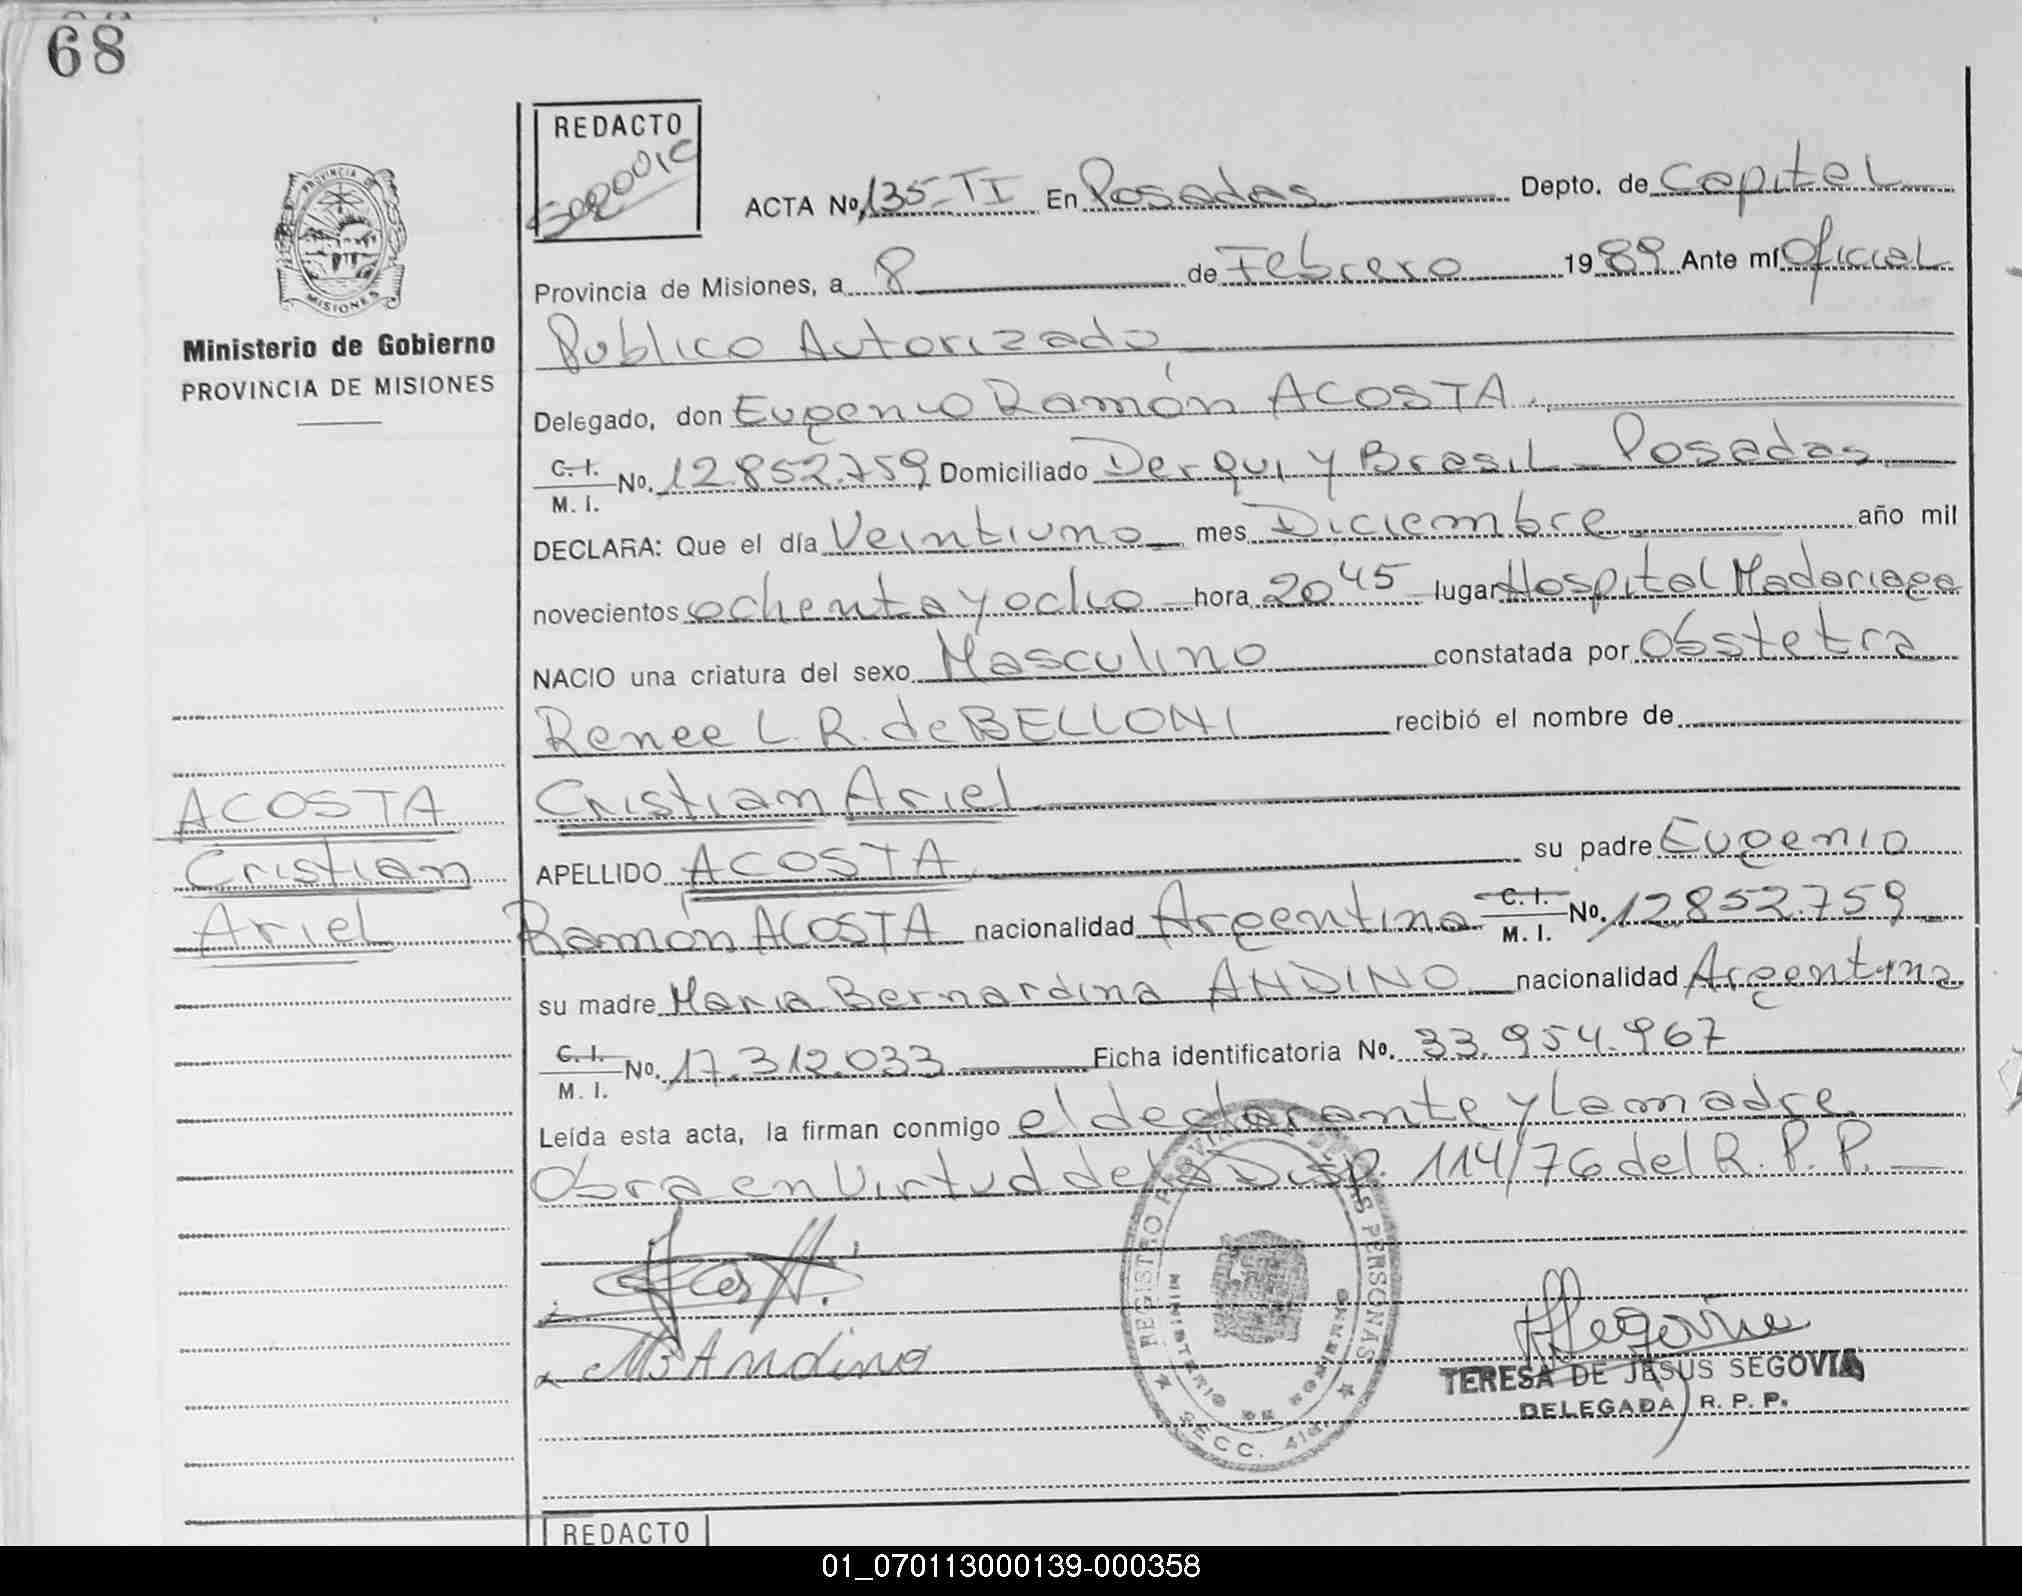 68
PROVINCIA DE
MISIONES
Ministerio de Gobierno
PROVINCIA DE MISIONES
ACOSTA
Cristian
Ariel
REDACTO
ACTA No. 135-TI En Posadas Depto. de Capital
Provincia de Misiones, a 8 de Febrero 1989 Ante mí Oficial
Publico Autorizado
Delegado, don Eugenio Ramón ACOSTA
C. I. M. I. No. 12.852.759 Domiciliado Derqui y Brasil - Posadas
DECLARA: Que el día Veintiuno mes Diciembre año mil
novecientos ochenta y ocho hora 20 45 lugar Hospital Madariaga
NACIO una criatura del sexo Masculino constatada por Obstetra
Renee L. R. de BELLONI recibió el nombre de
Cristian Ariel
APELLIDO ACOSTA su padre Eugenio
Ramón ACOSTA nacionalidad Argentina C. I. M. I. No. 12.852.759
su madre Maria Bernardina ANDINO nacionalidad Argentina
C. I. M. I. No. 17.312.033 Ficha identificatoria No. 33.954.967
Leída esta acta, la firman conmigo el declarante y la madre
Obra en Virtud de la Disp. 114/76 del R. P. P.
MB Andino
REGISTRO PROVINCIAL DE LAS PERSONAS
MINISTERIO DE GOBIERNO
SECC.
Segovia
TERESA DE JESUS SEGOVIA
DELEGADA R. P. P.
REDACTO
01_070113000139-000358